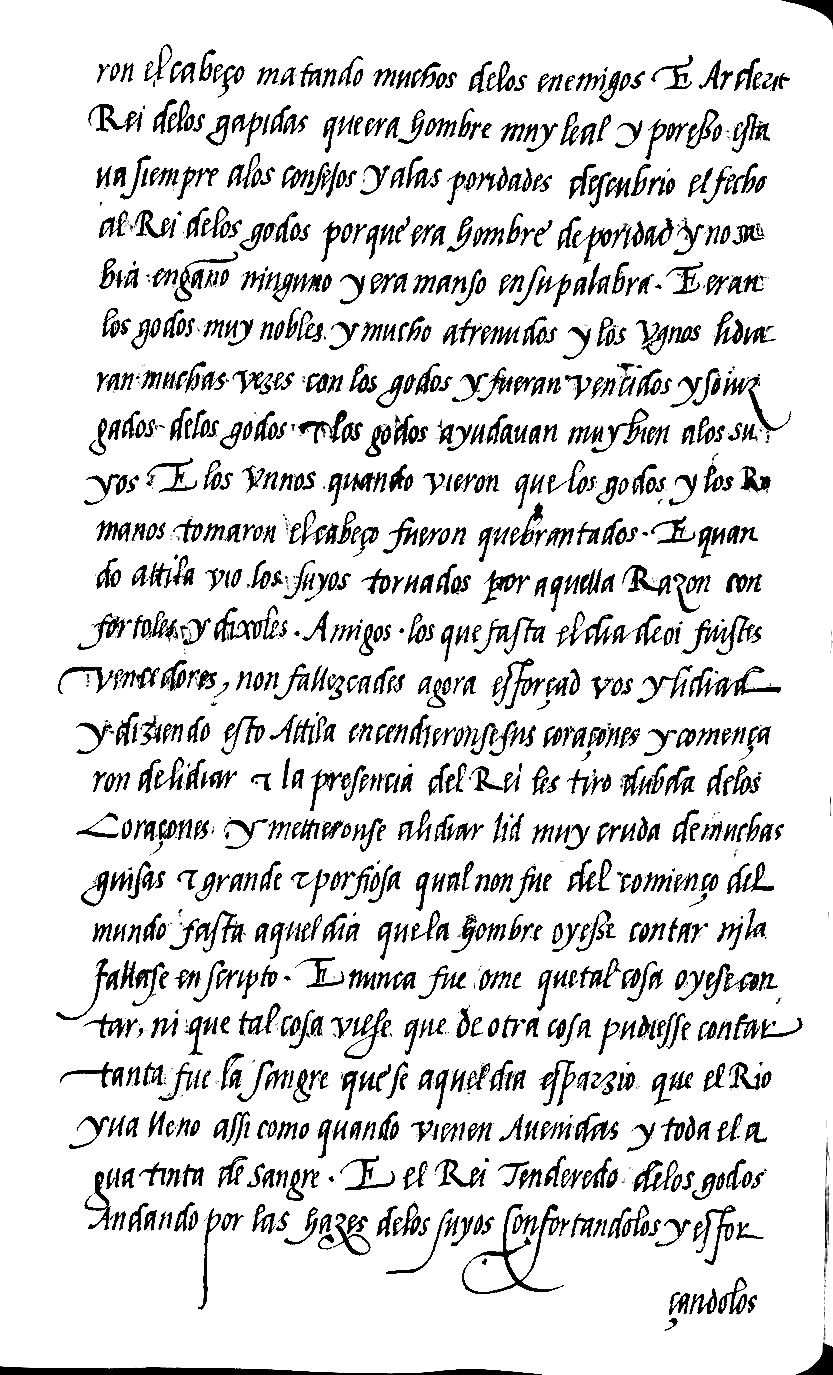 ron el cabeço matando muchos delos enemigos E Arderic
Rei delos gapidas que era hombre muy leal y poresso esta
ua siempre alos consejos y alas poridades descubrio el fecho
al Rei delos godos porque era hombre de poridad y no sa
bia engano ninguno y era manso en su palabra. E eran
los godos muy nobles y mucho atreuidos y los vgnos lidia
ran muchas vezes con los godos y fueran vencidos y soiuz
gados delos godos τ los godos ayudauan muy bien alos su
yos E los vnnos quando vieron que los godos y los Ro
manos tomaron el cabeço fueron quebrantados. E quan
do attila vio los suyos toruados por aquella Razon con
fortoles y dixoles. Amigos. los que fasta el dia de oi fuistes
vencedores, non fallezcades agora esforçad vos y lidiad
y diziendo esto Attila encendieronse sus coraçones y comença
ron de lidiar τ la presencia del Rei les tiro dubda delos
Coraçones y mettieronse a lidiar lid muy cruda de muchas
guisas τ grande τ porfiosa qual non fue del comienço del
mundo fasta aquel dia que la hombre oyesse contar nj la
fallase en scripto. E nunca fue ome que tal cosa oyese con
tar, ni que tal cosa viesse que de otra cosa pudiesse contar
tanta fue la sangre que se aquel dia esparzio que el Rio
yua lleno assi como quando vienen Auenidas y toda el a
gua tinta de sangre. E el Rei Tenderedo delos godos
Andando por las hazes delos suyos Confortandolos y esfor
çandolos